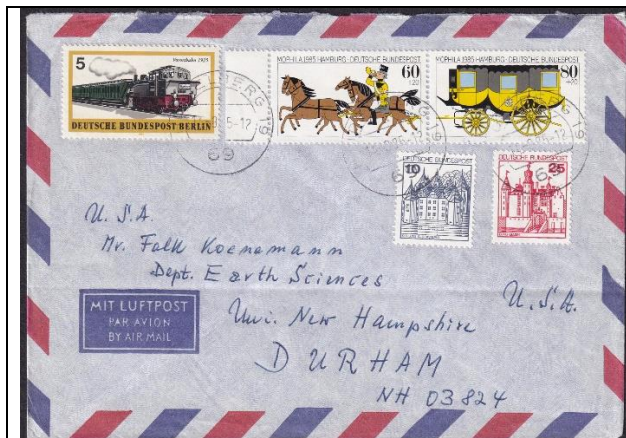 5
Stadtbahn 1925
DEUTSCHE BUNDESPOST BERLIN
MOPHILA 1985 HAMBURG · DEUTSCHE BUNDESPOST
60
+20
MOPHILA 1985 HAMBURG · DEUTSCHE BUNDESPOST
80
+20
69
DEUTSCHE BUNDESPOST
10
DEUTSCHE BUNDESPOST
25
U.S.A.
Mr. Falk Koenemann
Dept. Earth Sciences
Uni. New Hampshire
U.S.A.
DURHAM
NH 03824
MIT LUFTPOST
PAR AVION
BY AIR MAIL